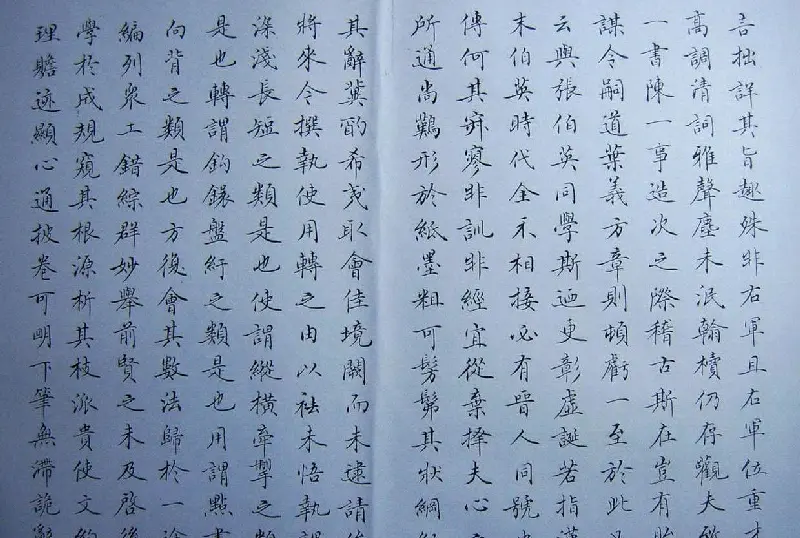 言拙詳其旨趣殊非右軍且右軍位重
高調清詞雅聲塵未泯翰櫝仍存觀夫
一書陳一事造次之際稽古斯在豈有
謀令嗣道葉義方章則頓虧一至於此
云與張伯英同學斯迺更彰虛誕若指
末伯英時代全不相接必有晉人同號
傳何其寂寥非訓非經宜從棄擇夫心
所通尚難形於紙墨粗可髣髴其狀綱
其辭冀酌希夷取會佳境闕而未逮請
將來今撰執使用轉之由以祛未悟執
深淺長短之類是也使謂縱橫牽掣之
是也轉謂鈎鐶盤紆之類是也用謂點
向背之類是也方復會其數法歸於一
編列眾工錯綜群妙舉前賢之未及啓
學於成規窺其根源析其枝派貴使文
理贍迹顯心通披卷可明下筆無滯詭